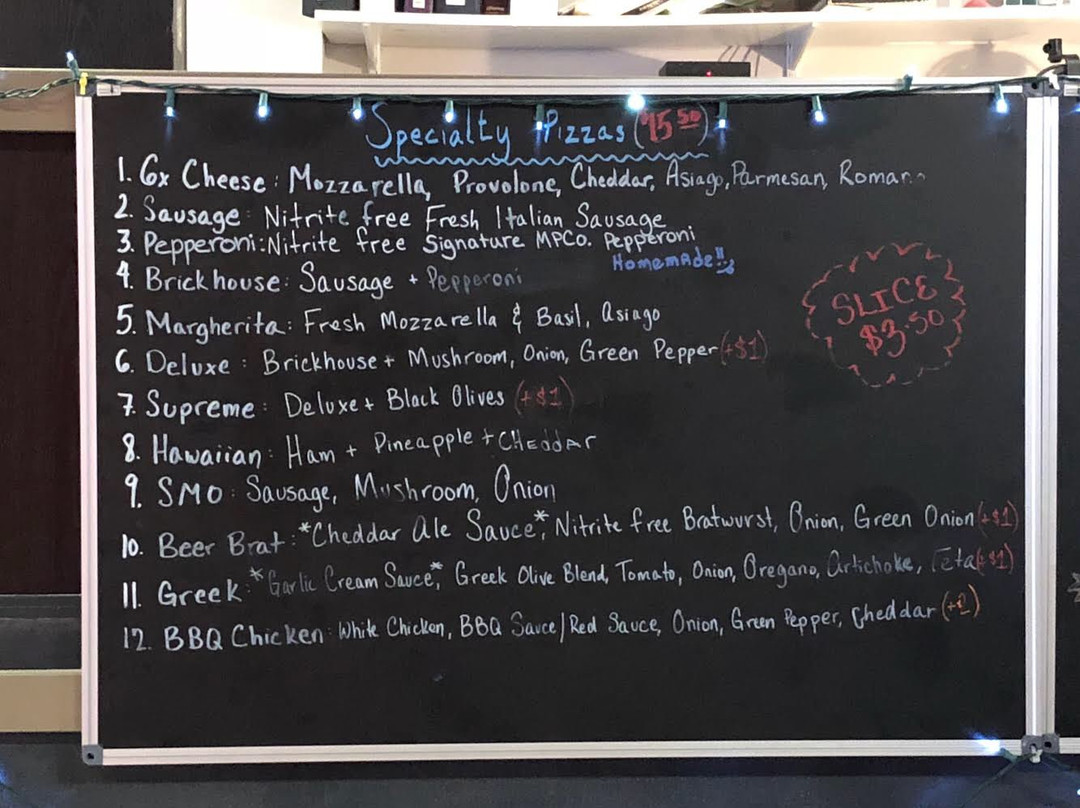 Specialty Pizzas ($15.50)
1. 6x Cheese: Mozzarella, Provolone, Cheddar, Asiago, Parmesan, Romano
2. Sausage: Nitrite free Fresh Italian Sausage
3. Pepperoni: Nitrite free Signature MPCo. Pepperoni
Homemade!!
4. Brickhouse: Sausage + Pepperoni
5. Margherita: Fresh Mozzarella & Basil, Asiago
6. Deluxe: Brickhouse + Mushroom, Onion, Green Pepper (+$1)
7. Supreme: Deluxe + Black Olives (+$1)
8. Hawaiian: Ham + Pineapple + Cheddar
9. SMO: Sausage, Mushroom, Onion
10. Beer Brat: *Cheddar Ale Sauce*, Nitrite free Bratwurst, Onion, Green Onion (+$1)
11. Greek: *Garlic Cream Sauce*, Greek Olive Blend, Tomato, Onion, Oregano, Artichoke, Feta (+$1)
12. BBQ Chicken: White Chicken, BBQ Sauce/Red Sauce, Onion, Green Pepper, Cheddar (+2)
SLICE
$3.50